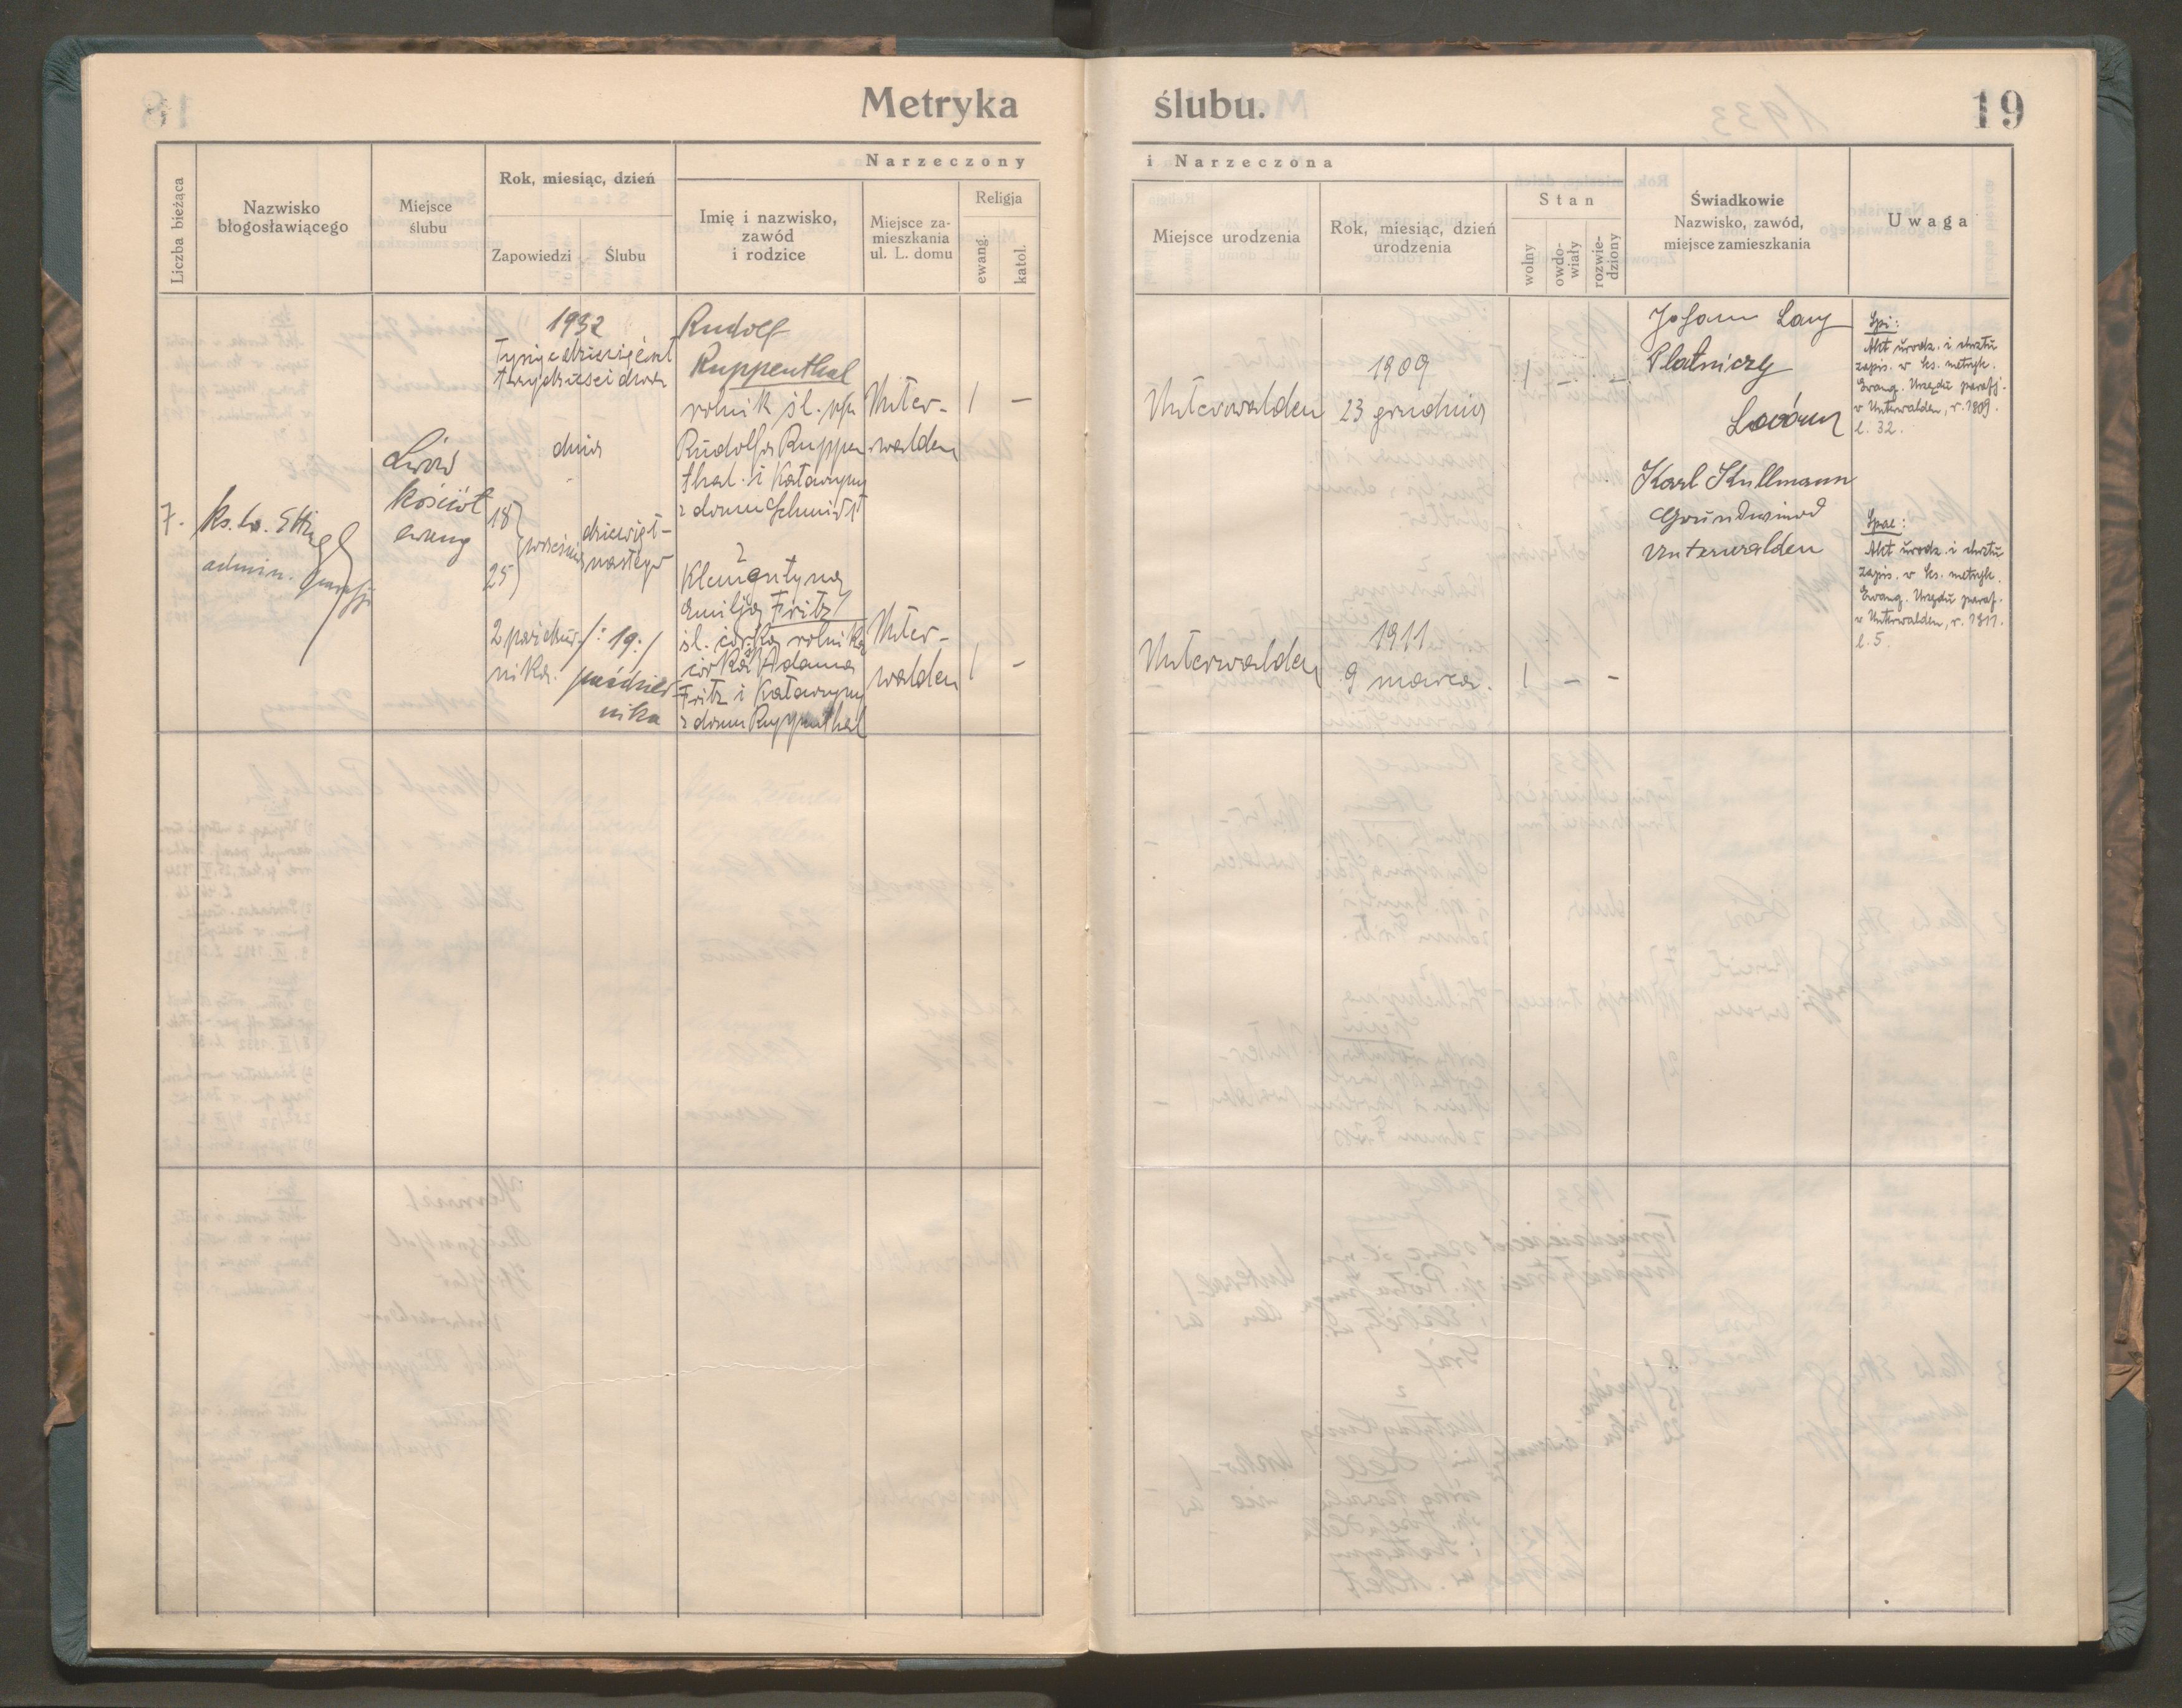 Metryka ślubu.
19
Liczba bieżąca
Nazwisko
błogosławiącego
Miejsce
ślubu
Rok, miesiąc, dzień
Zapowiedzi
Ślubu
Narzeczony
Imię i nazwisko,
zawód
i rodzice
Miejsce za-
mieszkania
ul. L. domu
Religja
ewang.
katol.
i Narzeczona
Miejsce urodzenia
Rok, miesiąc, dzień
urodzenia
Stan
wolny
owdo-
wiały
rozwie-
dziony
Świadkowie
Nazwisko, zawód,
miejsce zamieszkania
Uwaga
7.
ks.
admin. parafji
Lwów
kościół
ewang
1932
Tysiącdziewięćset
trzydzieści dwa
dnia
18
25
września
2 paździer-
nika.
dziewięt-
nastego
/: 19 :/
paździer-
nika
Rudolf
Ruppenthal
rolnik śl.
Rudolfa Ruppen
thal i Katarzyny
z domu Schmidt
Unter-
walden
1 –
Klementyna
Emilja Fritz
śl. córka rolnika
córka Adama
Fritz i Katarzyny
z domu Ruppenthal
Unter-
walden
1 –
Unterwalden
1909
23 grudnia
1 – –
Unterwalden
1911
9 marca.
1 – –
Johann Lang
Płatniczy
Karl Kullmann
Grundwirt
Unterwalden
Akt urodz. i chrztu
zapis. w ks. metryk.
Ewang. Urzędu parafj.
w Unterwalden, r. 1909.
l. 32.
Akt urodz. i chrztu
zapis. w ks. metryk.
Ewang. Urzędu paraf.
w Unterwalden, r. 1911.
l. 5.